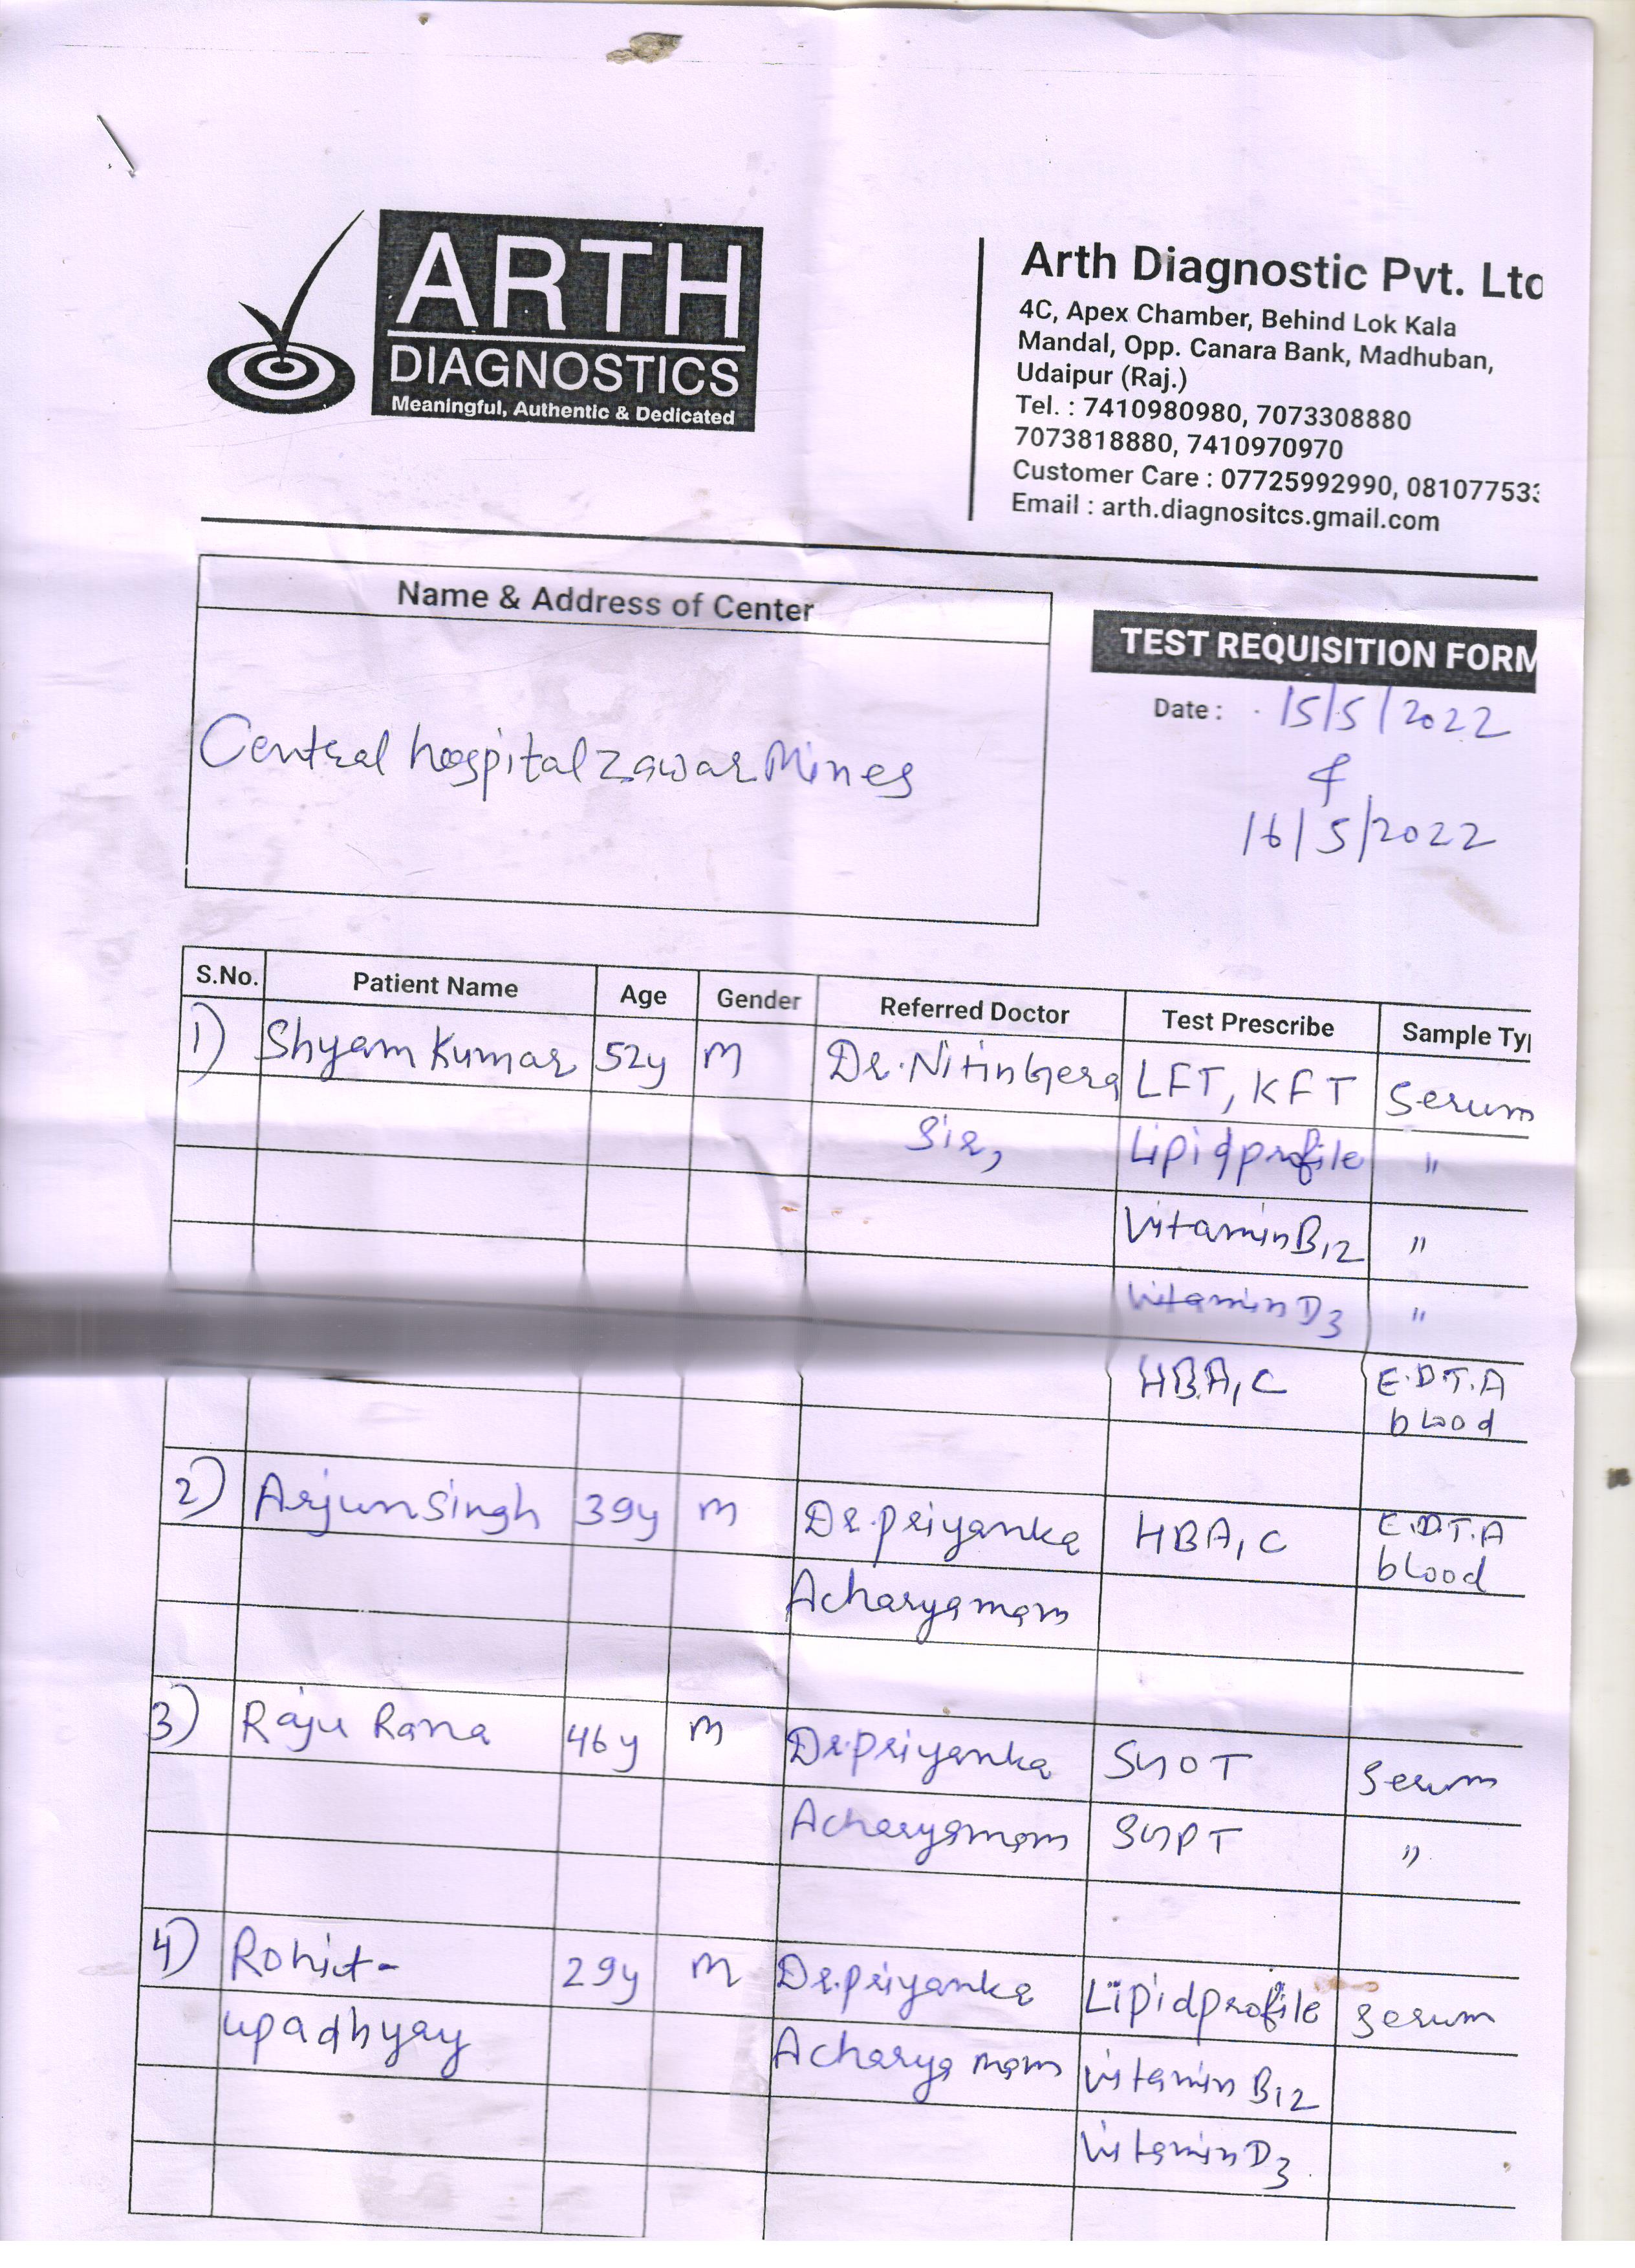 ARTH
DIAGNOSTICS
Meaningful, Authentic & Dedicated
Arth Diagnostic Pvt. Ltd
4C, Apex Chamber, Behind Lok Kala
Mandal, Opp. Canara Bank, Madhuban,
Udaipur (Raj.)
Tel. : 7410980980, 7073308880
7073818880, 7410970970
Customer Care : 07725992990, 081077533
Email : arth.diagnositcs.gmail.com
Name & Address of Center
Central hospital Zawar Mines
TEST REQUISITION FORM
Date : 15/5/2022
&
16/5/2022
S.No. Patient Name Age Gender Referred Doctor Test Prescribe Sample Typ
1) Shyam Kumar 52y M Dr. Nitin Gera LFT, KFT Serum
Sir, Lipid profile "
Vitamin B12 "
Vitamin D3 "
HBA1C E.D.T.A
blood
2) Arjun Singh 39y M Dr. Priyanka HBA1C E.D.T.A
blood
Acharya mam
3) Raju Rana 46y M Dr. Priyanka SGOT Serum
Acharya mam SGPT "
4) Rohit- 29y M Dr. Priyanka Lipid profile Serum
upadhyay Acharya mam Vitamin B12
Vitamin D3